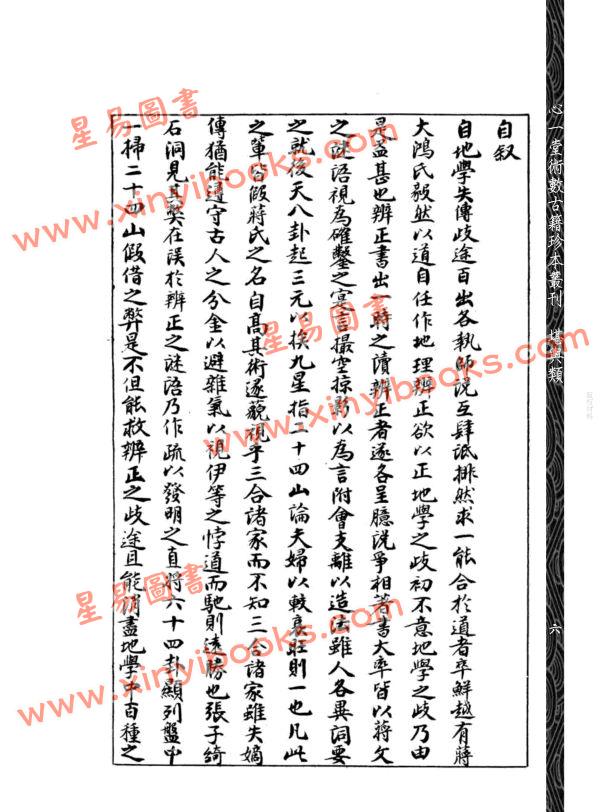 心一堂術數古籍珍本叢刊 堪輿類
六
自叙
自地學失傳歧途百出各執師說互肆詆排然求一能合於道者卒鮮越有蔣
大鴻氏毅然以道自任作地理辨正欲以正地學之歧初不意地學之歧乃由
是益甚也辨正書出一時之讀辨正者遂各呈臆說爭相著書大率皆以蔣文
之謎語視為確鑿之寔言撮空掠影以為言附會支離以造法雖人各異詞要
之就後天八卦起三元以挨九星指二十四山論夫婦以較衰旺則一也凡此
之輩皆假蔣氏之名自高其術遂藐視乎三合諸家而不知三合諸家雖失嫡
傳猶能遵守古人之分金以避雜氣以視伊等之悖道而馳則遠勝也張子綺
石洞見其弊在誤於辨正之謎語乃作疏以發明之直將六十四卦顯列盤中
一掃二十四山假借之弊是不但能救辨正之歧途且能消盡地學千百種之
星易圖書
www.xinyibooks.com
星易圖書
www.xinyibooks.com
星易圖書
www.xinyibooks.com